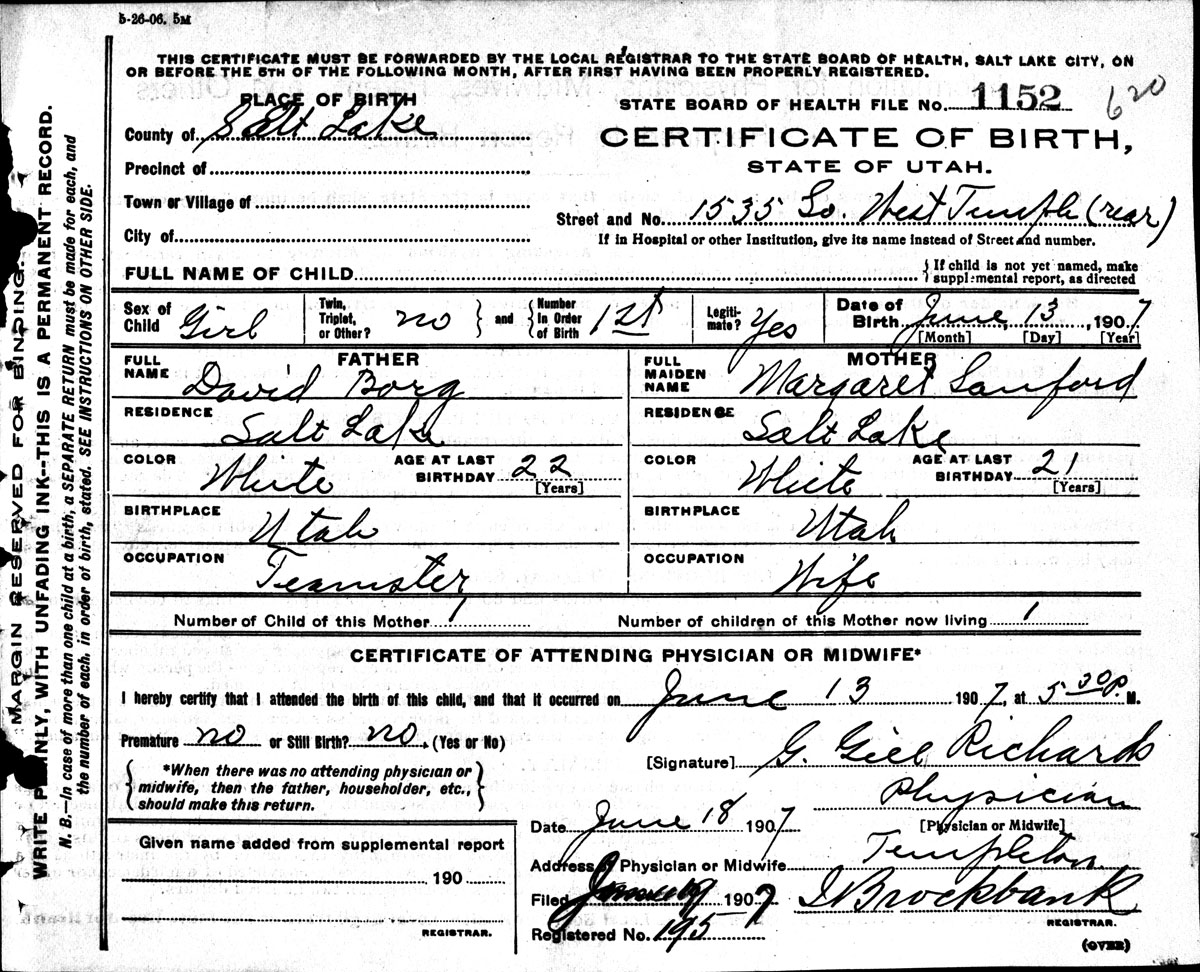 5-26-06. 5M
THIS CERTIFICATE MUST BE FORWARDED BY THE LOCAL REGISTRAR TO THE STATE BOARD OF HEALTH, SALT LAKE CITY, ON
OR BEFORE THE 5TH OF THE FOLLOWING MONTH, AFTER FIRST HAVING BEEN PROPERLY REGISTERED.
PLACE OF BIRTH
STATE BOARD OF HEALTH FILE No. 1152 620
County of Salt Lake
CERTIFICATE OF BIRTH,
STATE OF UTAH.
Precinct of
Town or Village of
Street and No. 1535 So. West Temple (rear)
City of
If in Hospital or other Institution, give its name instead of Street and number.
FULL NAME OF CHILD { If child is not yet named, make
supplemental report, as directed
Sex of Child Girl Twin, Triplet, or Other? no } and { Number In Order of Birth 1st Legitimate? Yes Date of Birth June, 13, 1907
[Month] [Day] [Year]
FATHER
FULL NAME David Borg
RESIDENCE Salt Lake
COLOR White AGE AT LAST BIRTHDAY 22
[Years]
BIRTHPLACE Utah
OCCUPATION Teamster
MOTHER
FULL MAIDEN NAME Margaret Sanford
RESIDENCE Salt Lake
COLOR White AGE AT LAST BIRTHDAY 21
[Years]
BIRTHPLACE Utah
OCCUPATION Wife
Number of Child of this Mother 1 Number of children of this Mother now living 1
CERTIFICATE OF ATTENDING PHYSICIAN OR MIDWIFE*
I hereby certify that I attended the birth of this child, and that it occurred on June 13 1907, at 5 30 P. M.
Premature no or Still Birth? no. (Yes or No)
[Signature] G. Gill Richards
{ *When there was no attending physician or
midwife, then the father, householder, etc.,
should make this return. }
Physician
[Physician or Midwife]
Date June 18 1907
Address of Physician or Midwife Templeton
Filed June 19 1907 Brockbank
REGISTRAR.
Registered No. 195
(OVER)
Given name added from supplemental report
190
REGISTRAR.
MARGIN RESERVED FOR BINDING.
WRITE PLAINLY, WITH UNFADING INK--THIS IS A PERMANENT RECORD.
N. B.—In case of more than one child at a birth, a SEPARATE RETURN must be made for each, and
the number of each, in order of birth, stated. SEE INSTRUCTIONS ON OTHER SIDE.